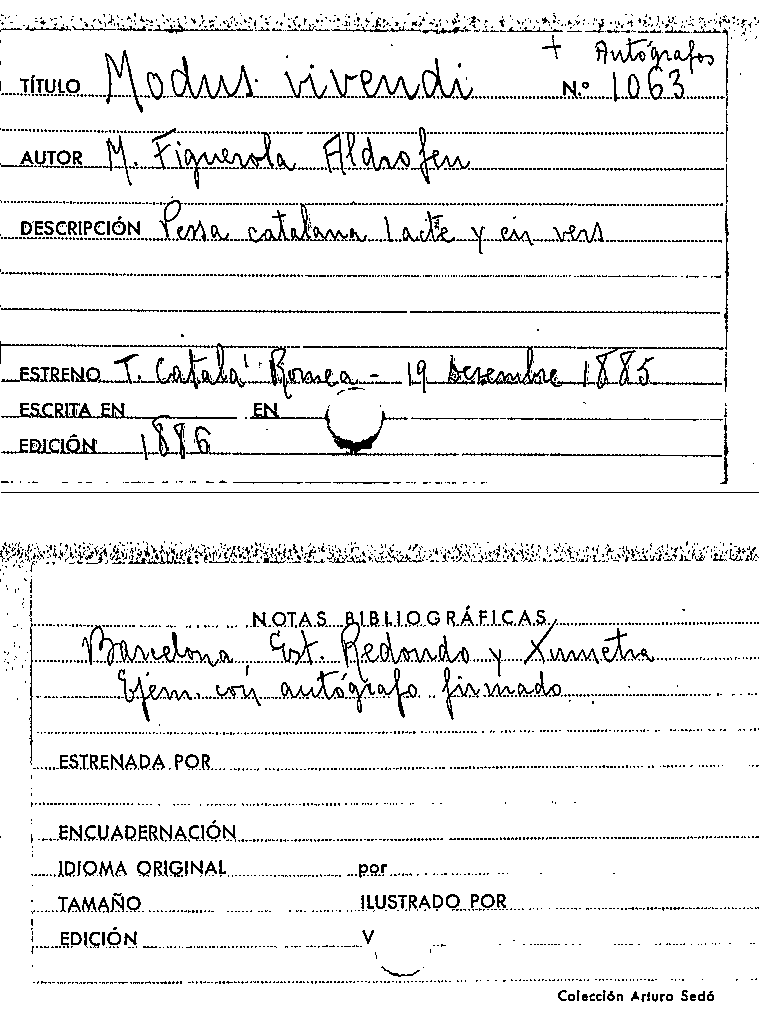 + Autógrafos
TÍTULO Modus vivendi N.º 1063
AUTOR M. Figuerola Aldrofeu
DESCRIPCIÓN Pessa catalana 1 acte y en vers
ESTRENO T. Catalá Romea - 19 Desembre 1885
ESCRITA EN EN
EDICIÓN 1886
NOTAS BIBLIOGRÁFICAS
Barcelona, Est. Redondo y Xumetra
Ejem. con autógrafo firmado
ESTRENADA POR
ENCUADERNACIÓN
IDIOMA ORIGINAL por
TAMAÑO ILUSTRADO POR
EDICIÓN V
Colección Arturo Sedó